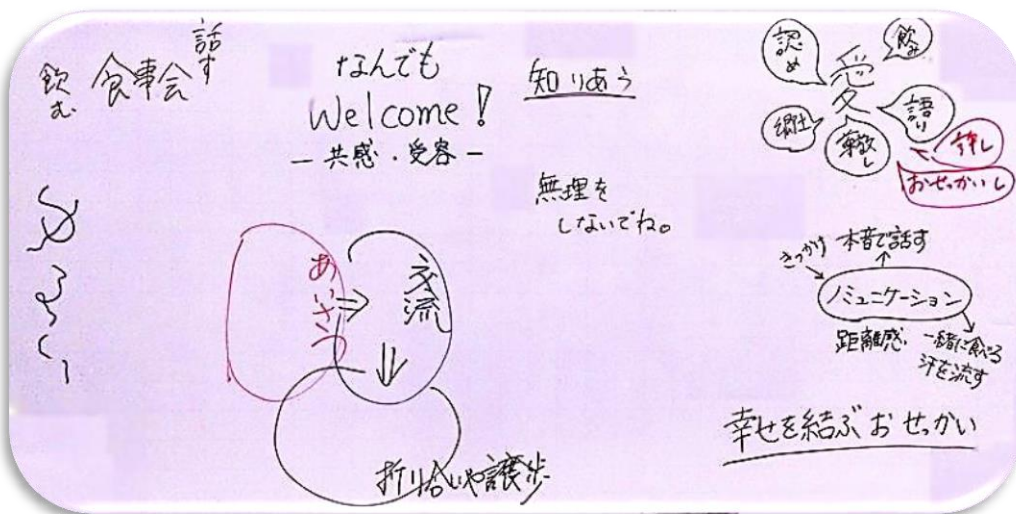 話す
飲む
食事会
なんでも
Welcome!
－共感・受容－
知りあう
無理を
しないでね。
あいさつ
⇒
交流
⇓
折り合いや譲歩
愛
認め
飲み
語り
許し
おせっかいし
郷土
きっかけ
本音で話す
ノミュニケーション
距離感
一緒に食べる
汗を流す
幸せを結ぶおせっかい